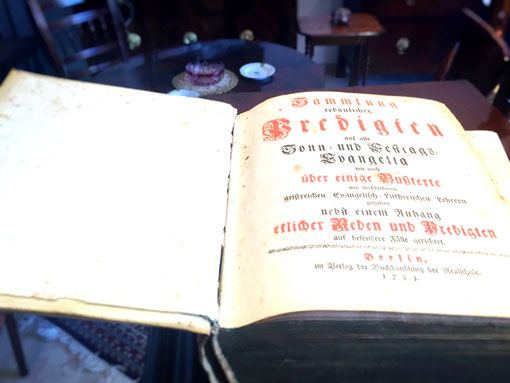 Sammlung
erbaulicher
Predigten
auf alle
Sonn- und Festtags-
Evangelia
wie auch
über einige Bußtexte
von verschiedenen
geistreichen Evangelisch-Lutherischen Lehrern
gehalten
nebst einem Anhang
etlicher Reden und Predigten
auf besondere Fälle gerichtet.
Berlin,
im Verlag der Buchhandlung der Realschule.